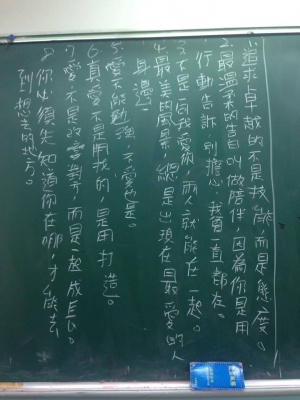 1.追求卓越的不是技能,而是態度。
2.最溫柔的告白叫做陪伴,因為你是用
行動告訴,別擔心,我會一直都在。
3.不是我愛你,兩人就能在一起。
4.最美的風景,總是出現在最愛的人
身邊。
5.愛不能勉強,不愛也是。
6.真愛不是用找的,是用打造。
7.愛,不是改變對方,而是一起成長。
8.你必須先知道你在哪,才能去
到想去的地方。